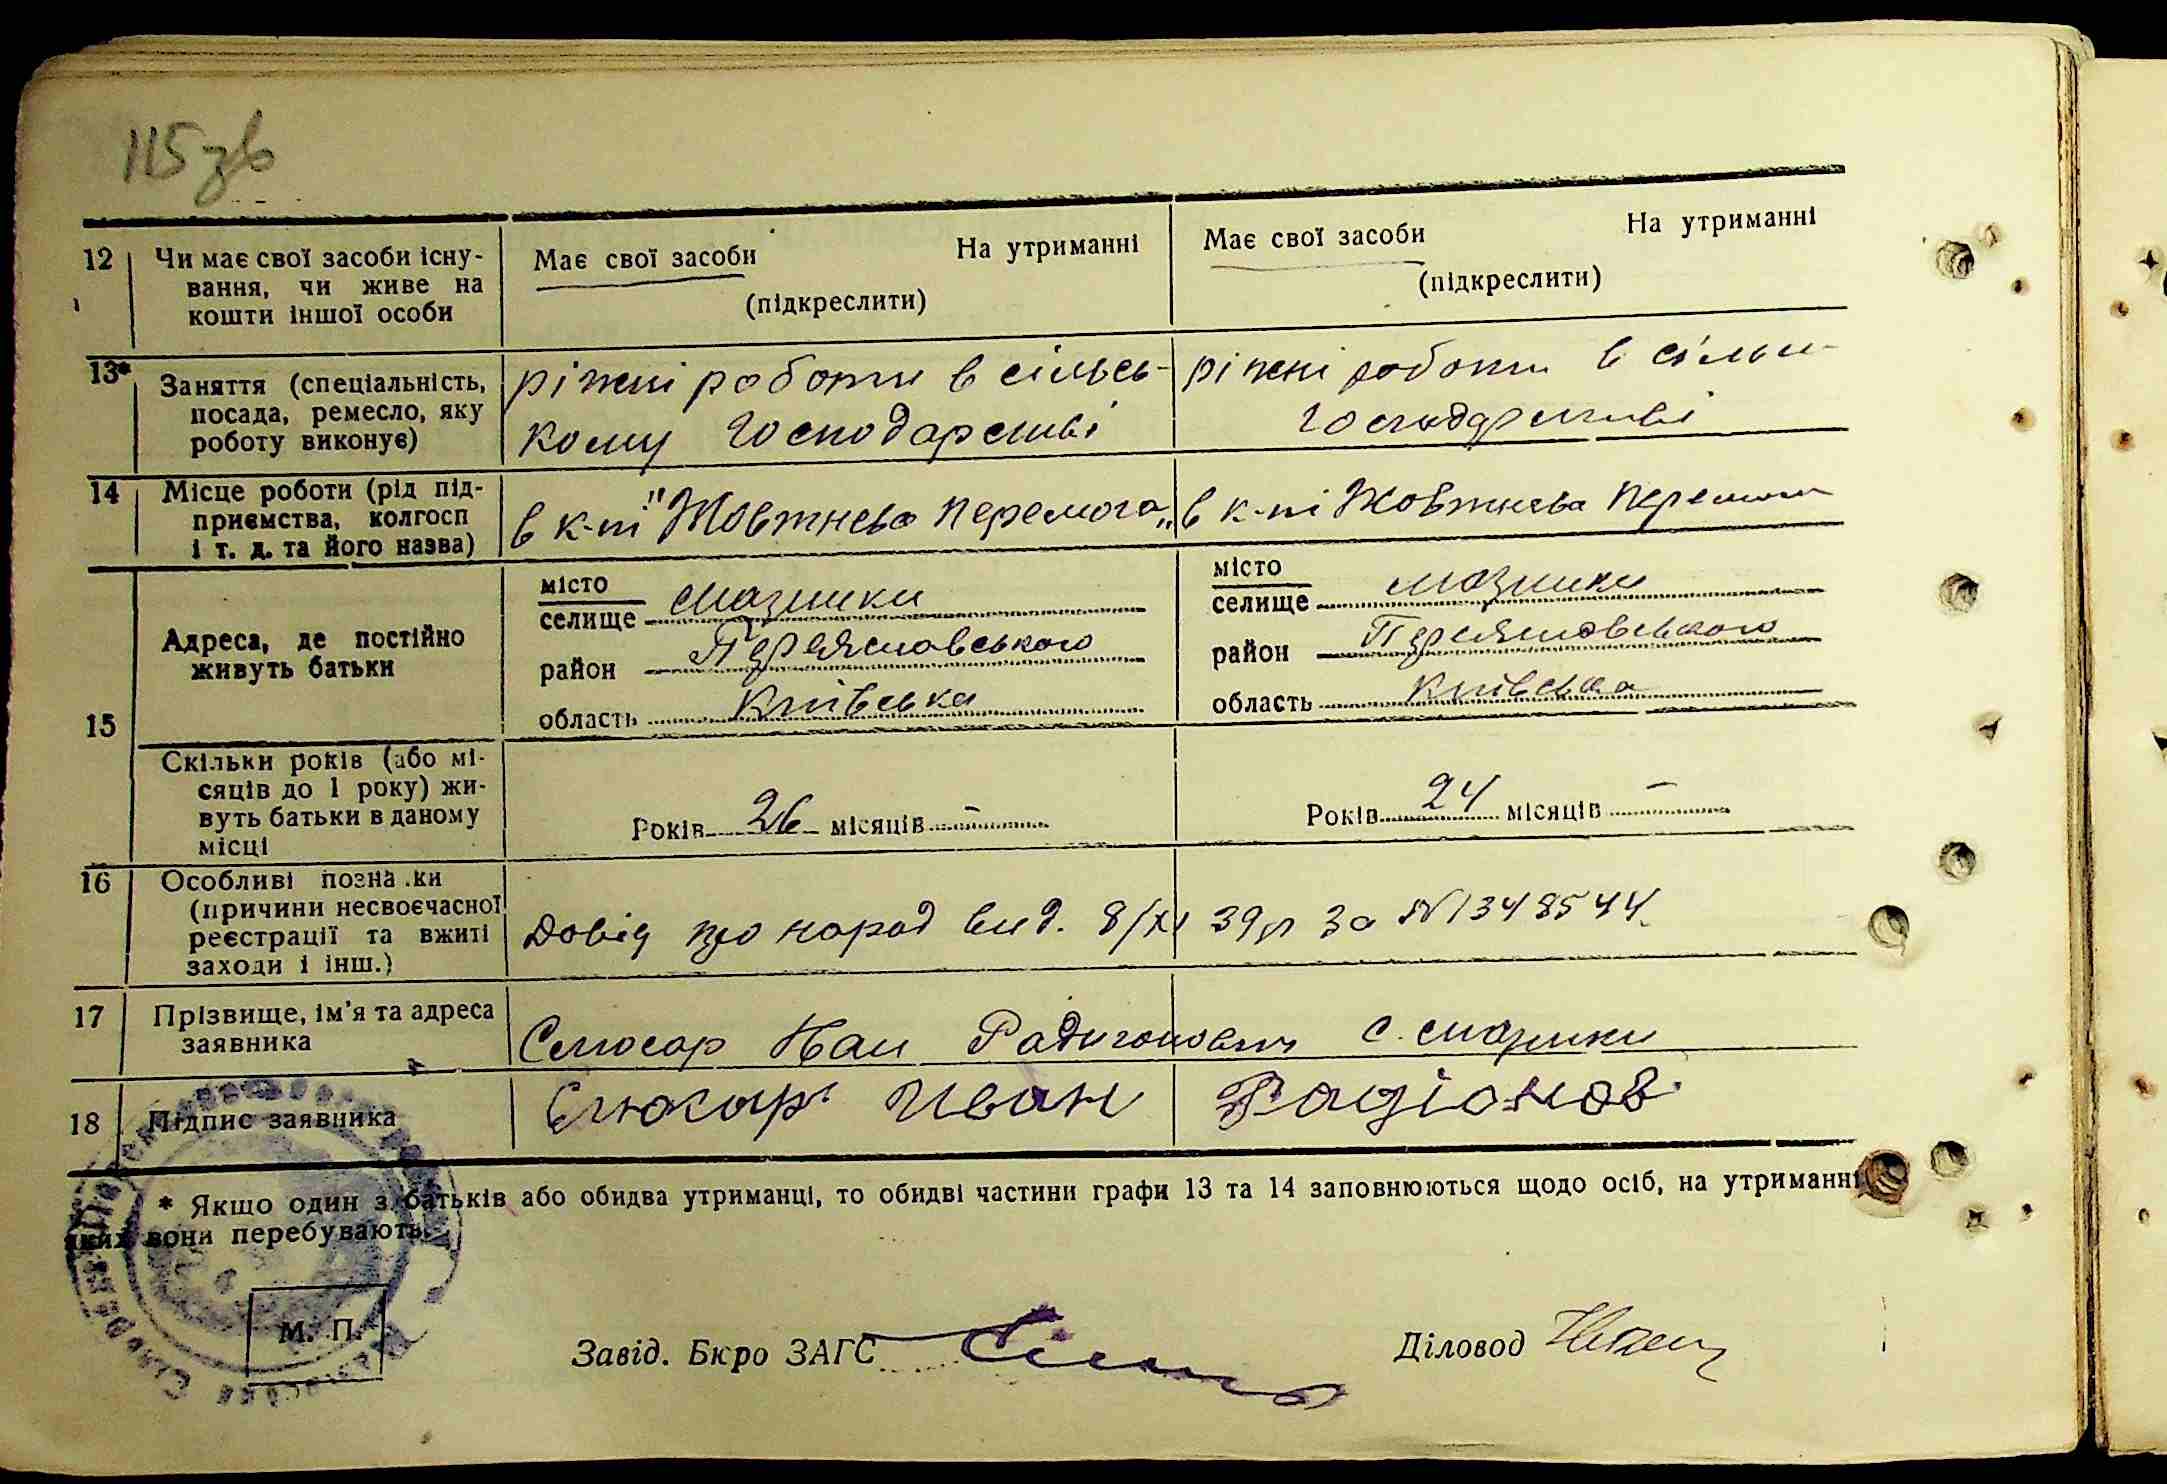 115 зв
12 Чи має свої засоби існу-
вання, чи живе на
кошти іншої особи
Має свої засоби На утриманні
(підкреслити)
Має свої засоби На утриманні
(підкреслити)
13* Заняття (спеціальність,
посада, ремесло, яку
роботу виконує)
ріжні роботи в сільсь-
кому господарстві
ріжні роботи в сільс
господарстві
14 Місце роботи (рід під-
приємства, колгосп
і т. д. та його назва)
в к-пі "Жовтнева перемога"
в к-пі Жовтнева перемога
15 Адреса, де постійно
живуть батьки
місто
селище Мазинки
район Переяславського
область Київська
місто
селище Мазинки
район Переяславського
область Київська
Скільки років (або мі-
сяців до 1 року) жи-
вуть батьки в даному
місці
Років 26 місяців –
Років 24 місяців –
16 Особливі позна.ки
(причини несвоєчасної
реєстрації та вжиті
заходи і інш.)
Довід про народ вид. 8/XI 39 р за №1348544
17 Прізвище, ім'я та адреса
заявника
Слюсар Іван Радигонович с. Мазинки
18 Підпис заявника
Слюсар Иван Радіонов
* Якщо один з батьків або обидва утриманці, то обидві частини графи 13 та 14 заповнюються щодо осіб, на утриманні
яких вони перебувають.
М. П.
Завід. Бюро ЗАГС
Діловод